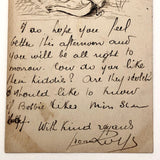 I do hope you feel
better this afternoon and
you will be all right to
morrow. How do you like
these kiddies? Are they Scotch
I should like to know
if Bobbie likes Miss
With kind regards